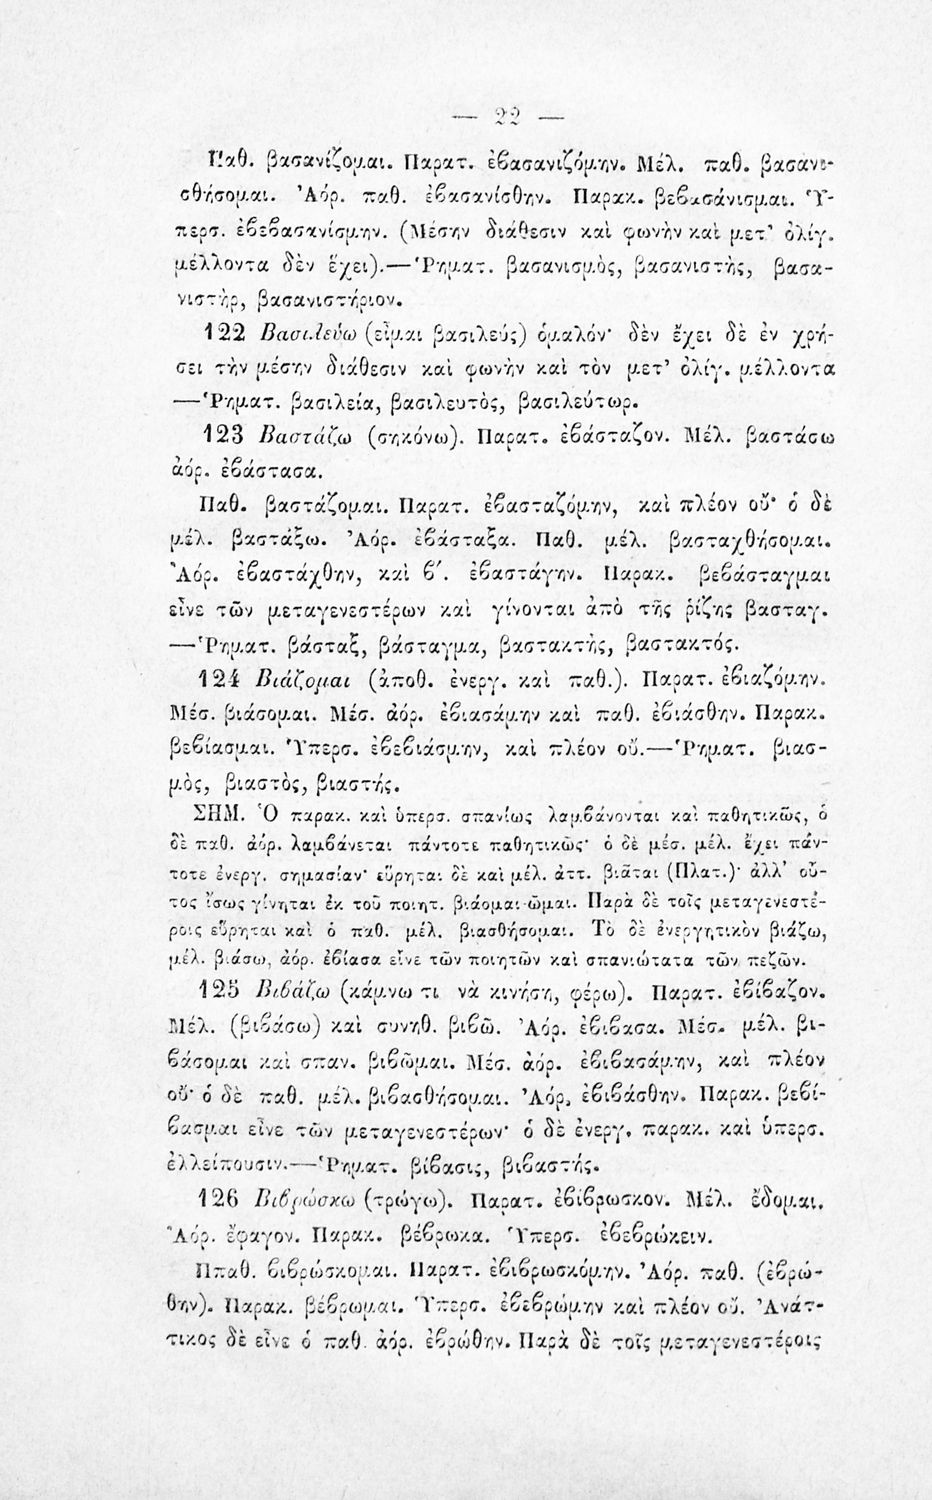 — 22 —
Παθ. βασανίζομαι. Παρατ. ἐβασανιζόμην. Μέλ. παθ. βασανι-
σθήσομαι. Ἀόρ. παθ. ἐβασανίσθην. Παρακ. βεβασάνισμαι. Ὑ-
περσ. ἐβεβασανίσμην. (Μέσην διάθεσιν καὶ φωνὴν καὶ μετ' ὀλίγ.
μέλλοντα δὲν ἔχει).—Ῥηματ. βασανισμὸς, βασανιστὴς, βασα-
νιστὴρ, βασανιστήριον.
122 Βασιλεύω (εἶμαι βασιλεύς) ὁμαλόν· δὲν ἔχει δὲ ἐν χρή-
σει τὴν μέσην διάθεσιν καὶ φωνὴν καὶ τὸν μετ' ὀλίγ. μέλλοντα
—Ῥηματ. βασιλεία, βασιλευτὸς, βασιλεύτωρ.
123 Βαστάζω (σηκόνω). Παρατ. ἐβάσταζον. Μέλ. βαστάσω
ἀόρ. ἐβάστασα.
Παθ. βαστάζομαι. Παρατ. ἐβασταζόμην, καὶ πλέον οὔ· ὁ δὲ
μέλ. βαστάξω. Ἀόρ. ἐβάσταξα. Παθ. μέλ. βασταχθήσομαι.
Ἀόρ. ἐβαστάχθην, καὶ β'. ἐβαστάγην. Παρακ. βεβάσταγμαι
εἶνε τῶν μεταγενεστέρων καὶ γίνονται ἀπὸ τῆς ῥίζης βασταγ.
—Ῥηματ. βάσταξ, βάσταγμα, βαστακτὴς, βαστακτός.
124 Βιάζομαι (ἀποθ. ἐνεργ. καὶ παθ.). Παρατ. ἐβιαζόμην.
Μέσ. βιάσομαι. Μέσ. ἀόρ. ἐβιασάμην καὶ παθ. ἐβιάσθην. Παρακ.
βεβίασμαι. Ὑπερσ. ἐβεβιάσμην, καὶ πλέον οὔ.—Ῥηματ. βιασ-
μὸς, βιαστὸς, βιαστής.
ΣΗΜ. Ὁ παρακ. καὶ ὑπερσ. σπανίως λαμβάνονται καὶ παθητικῶς, ὁ
δὲ παθ. ἀόρ. λαμβάνεται πάντοτε παθητικῶς· ὁ δὲ μέσ. μέλ. ἔχει πάν-
τοτε ἐνεργ. σημασίαν· εὕρηται δὲ καὶ μέλ. ἀττ. βιᾶται (Πλατ.)· ἀλλ' οὗ-
τος ἴσως γίνηται ἐκ τοῦ ποιητ. βιάομαι-ῶμαι. Παρὰ δὲ τοῖς μεταγενεστέ-
ροις εὕρηται καὶ ὁ παθ. μέλ. βιασθήσομαι. Τὸ δὲ ἐνεργητικὸν βιάζω,
μέλ. βιάσω, ἀόρ. ἐβίασα εἶνε τῶν ποιητῶν καὶ σπανιώτατα τῶν πεζῶν.
125 Βιβάζω (κάμνω τι νὰ κινήσῃ, φέρω). Παρατ. ἐβίβαζον.
Μέλ. (βιβάσω) καὶ συνηθ. βιβῶ. Ἀόρ. ἐβιβασα. Μέσ. μέλ. βι-
βάσομαι καὶ σπαν. βιβῶμαι. Μέσ. ἀόρ. ἐβιβασάμην, καὶ πλέον
οὔ· ὁ δὲ παθ. μέλ. βιβασθήσομαι. Ἀόρ, ἐβιβάσθην. Παρακ. βεβί-
βασμαι εἶνε τῶν μεταγενεστέρων· ὁ δὲ ἐνεργ. παρακ. καὶ ὑπερσ.
ἐλλείπουσιν.—Ῥηματ. βίβασις, βιβαστής.
126 Βιβρώσκω (τρώγω). Παρατ. ἐβίβρωσκον. Μέλ. ἔδομαι.
Ἀόρ. ἔφαγον. Παρακ. βέβρωκα. Ὑπερσ. ἐβεβρώκειν.
Ππαθ. βιβρώσκομαι. Παρατ. ἐβιβρωσκόμην. Ἀόρ. παθ. (ἐβρώ-
θην). Παρακ. βέβρωμαι. Ὑπερσ. ἐβεβρώμην καὶ πλέον οὔ. Ἀνάτ-
τικος δὲ εἶνε ὁ παθ. ἀόρ. ἐβρώθην. Παρὰ δὲ τοῖς μεταγενεστέροις